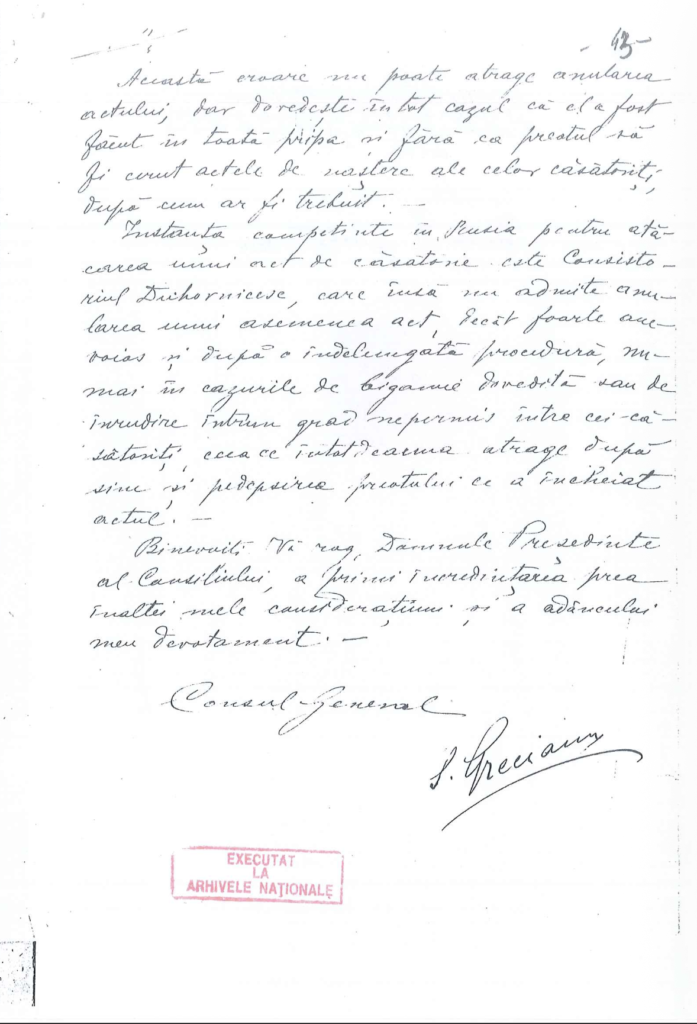 - 43 -
Această eroare nu poate atrage anularea
actului, dar dovedește în tot cazul că el a fost
făcut în toată pripa și fără ca preotul să
fi cerut actele de naștere ale celor căsătoriți,
după cum ar fi trebuit. —
Instanța competinte în Rusia pentru ata-
carea unui act de căsătorie este Consisto-
riul Duhovnicesc, care însă nu admite anu-
larea unui asemenea act, decât foarte ane-
voios și după o îndelungată procedură, nu-
mai în cazurile de bigamie dovedită sau de
înrudire într'un grad nepermis între cei că-
sătoriți, ceea ce întotdeauna atrage după
sine și pedepsirea preotului ce a încheiat
actul. —
Binevoiți Vă rog, Domnule Președinte
al Consiliului, a primi încredințarea prea
înaltei mele considerațiuni și a adâncului
meu devotament. —
Consul General
S. Greceanu
EXECUTAT
LA
ARHIVELE NAȚIONALE